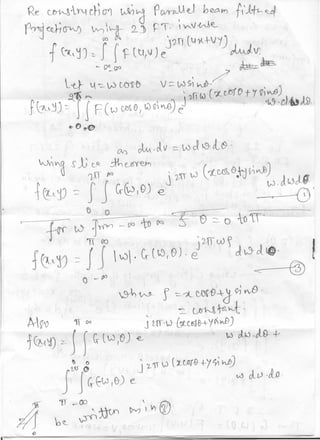 Re construction using Parallel beam filtered
Projections using 2D FT. inverse
f(x,y) = ∫∫ F(u,v) e^{j2π(ux+vy)} du dv.
-∞
Let u = w cosθ v = w sinθ.
f(x,y) = ∫∫ F(w cosθ, w sinθ) e^{j2πw(x cosθ + y sinθ)} w.dw dθ
as du.dv = w dw dθ.
using slice theorem
f(x,y) = ∫_0^{2π} ∫_0^∞ G(w,θ) e^{j2πw(x cosθ + y sinθ)} w.dw dθ
①
for w from -∞ to ∞ & θ = 0 to π
f(x,y) = ∫_0^π ∫_{-∞}^∞ |w|. G(w,θ). e^{j2πwρ} dw dθ
③
where ρ = x cosθ + y sinθ
= constant.
Also
f(x,y) = ∫_0^π ∫_0^∞ G(w,θ) e^{j2πw(x cosθ + y sinθ)} w dw.dθ +
∫_π^{2π} ∫ G(w,θ) e^{j2πw(x cosθ + y sinθ)} w dw.dθ.
be written as in ②